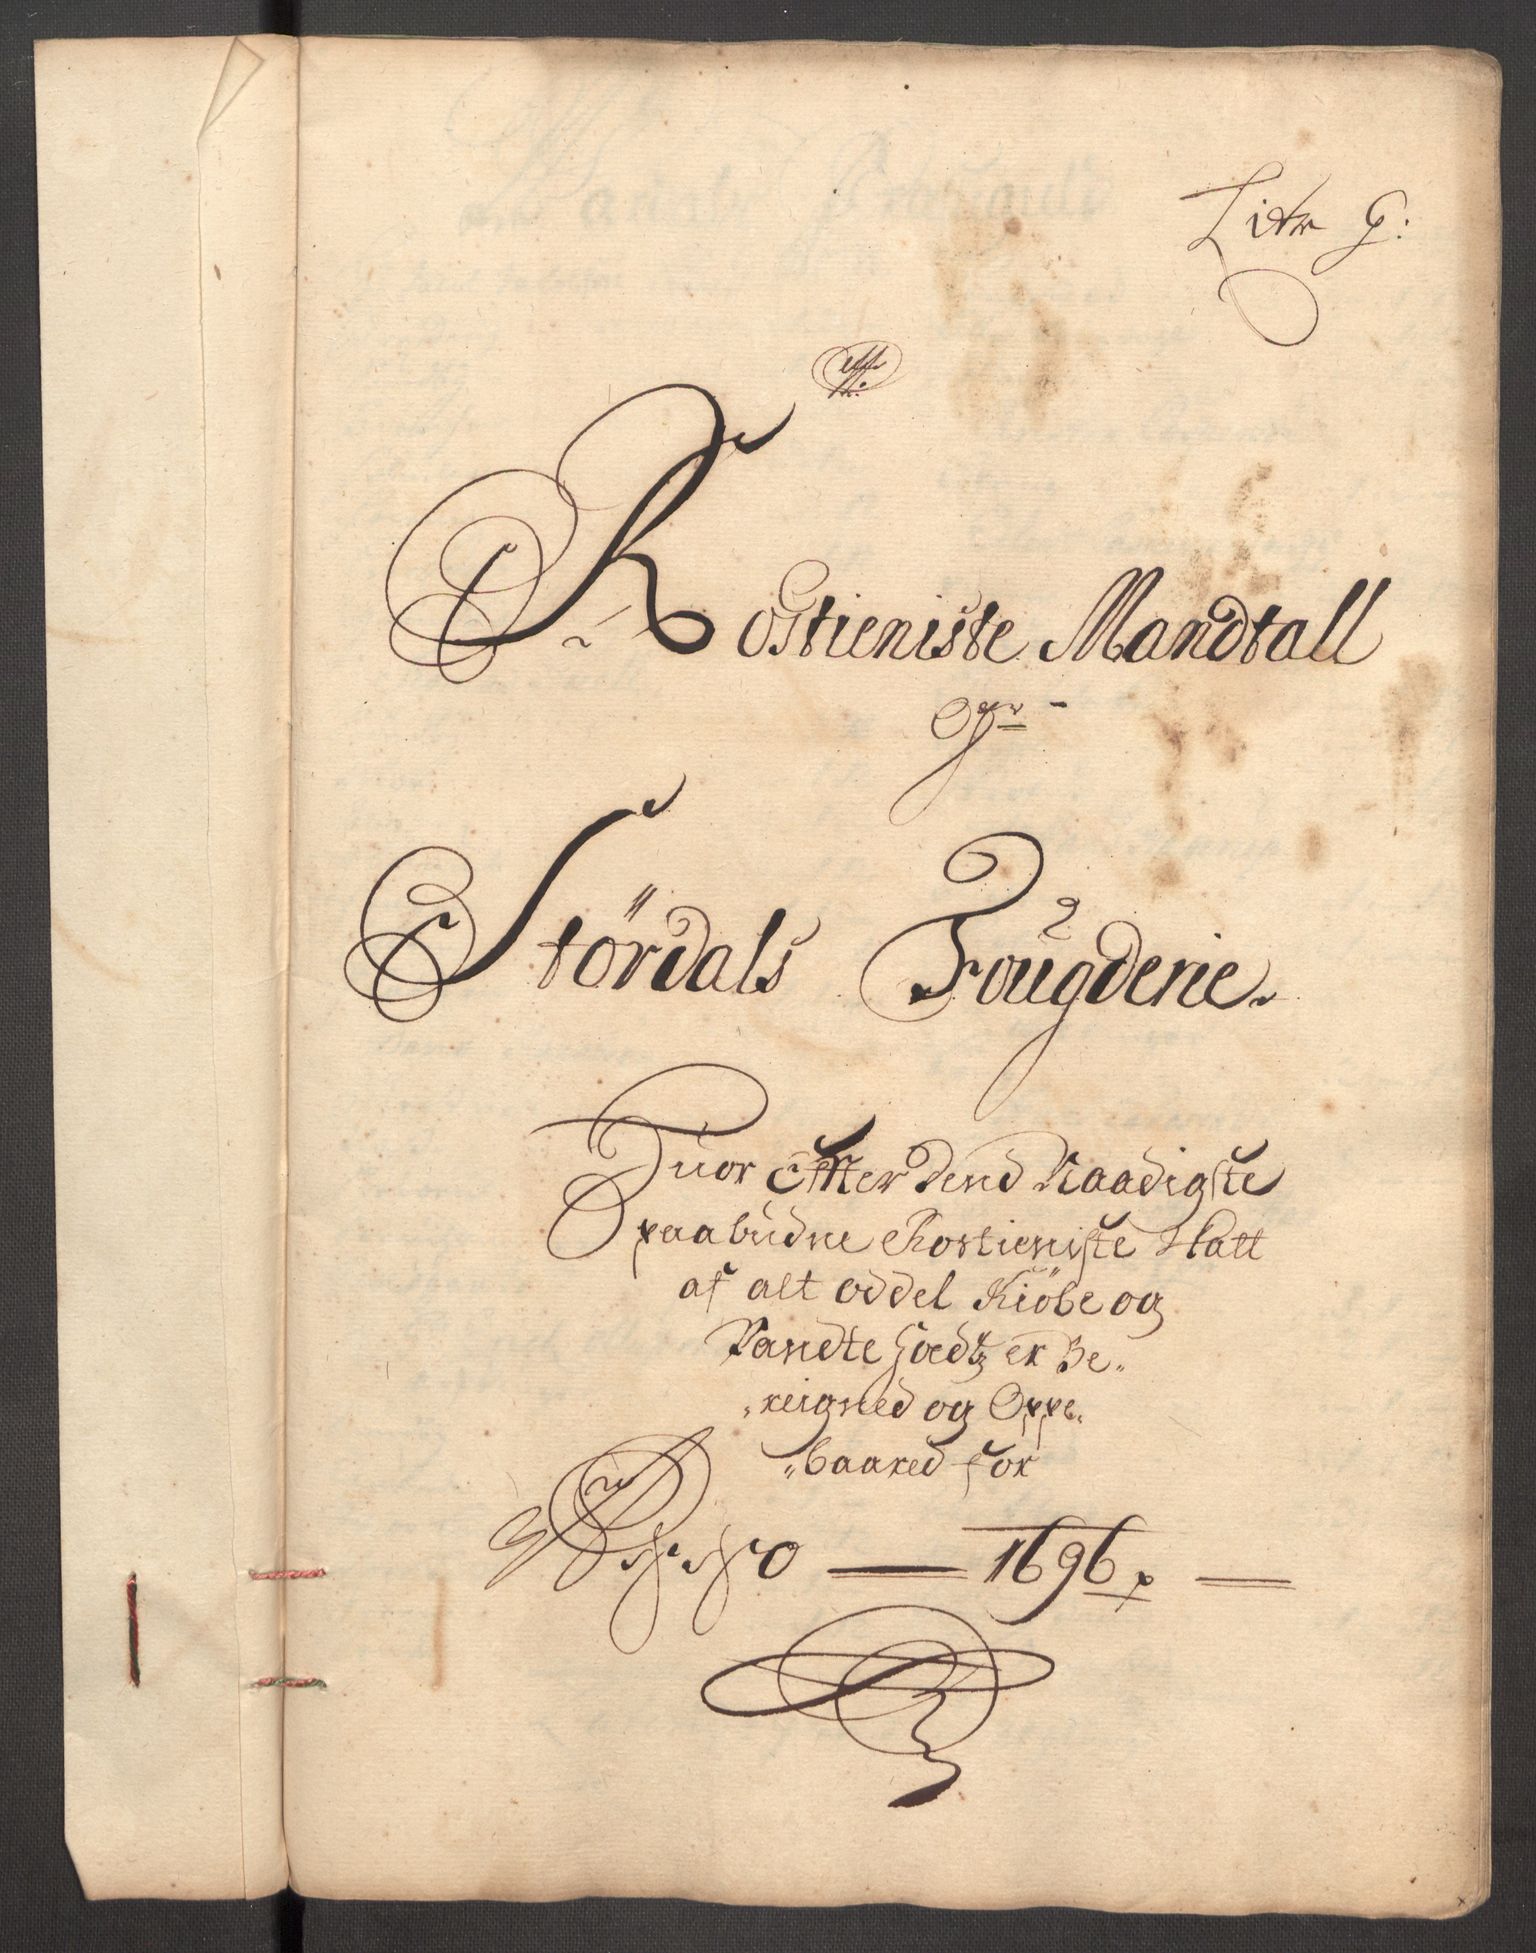 Litr G:
Rostieniste Mandtall
ofr
Stördals Fougderie.
Huor Effter dend Naadigste
paabudne Rostieniste Skatt
af alt oddel Kiöbe og
Pandte Goedtz er Be„
„reigned og Oppe„
„baared for
1696